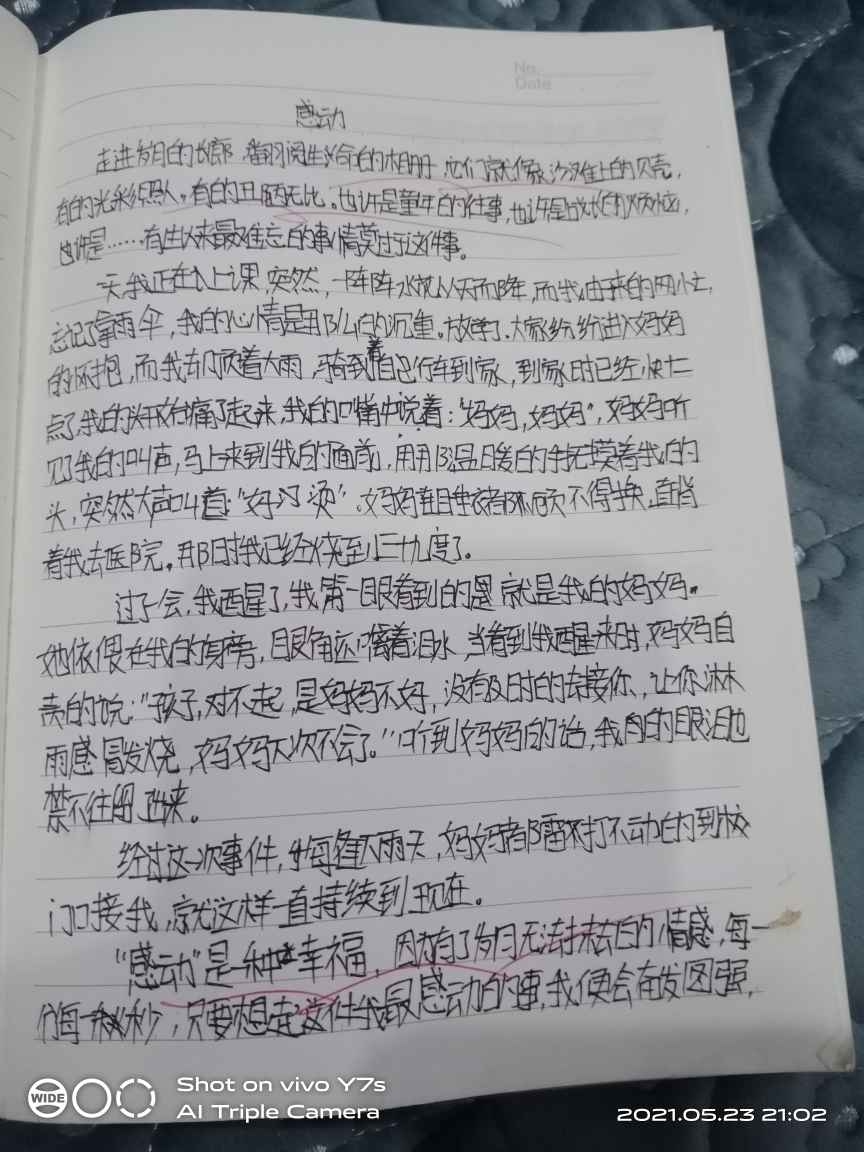 No.
Date
感动
走进岁月的长廊,翻阅生命的相册,它们就像沙滩上的贝壳,
有的光彩照人,有的丑陋无比。也许是童年的往事,也许是成长的烦恼,
也许是……有生以来最难忘的事情莫过于这件事。
一天,我正在上课,突然,一阵阵水从天而降,而我由于我的
忘记了拿雨伞,我的心情是那么的沉重。放学了,大家纷纷进入妈妈
的怀抱,而我却顶着大雨,骑着自己行车到家,到家时已经快七
点了,我的头开始痛了起来,我的口嘴中说着:“妈妈,妈妈”,妈妈听
见了我的叫声,马上来到我的面前,用那温暖的手抚摸着我的
头,突然大声叫道:“好烫”。妈妈连睡衣都顾不得换,直背
着我去医院。那时我已经烧至三十九度了。
过了一会,我醒了,我第一眼看到的是就是我的妈妈。
她依偎在我的身旁,眼角还噙着泪水,当看到我醒来时,妈妈自
责的说:“孩子,对不起,是妈妈不好,没有及时的去接你,让你淋
雨感冒发烧,妈妈下次不会了。”听到妈妈的话,我的眼泪也
禁不住出来。
经过这一次事件,每逢下雨天,妈妈都雷打不动的到校
门口接我,就这样一直持续到现在。
“感动”是一种幸福,因为有了岁月无法抹去的情感,每一
分每一秒,只要想起这件我最感动的事,我便会奋发图强,
WIDE
Shot on vivo Y7s
AI Triple Camera
2021.05.23 21:02